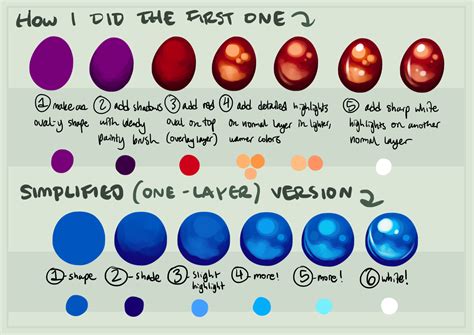 HOW I DID THE FIRST ONE
① make an
oval-y shape
② add shadows
with dandy
painty brush
③ add red
oval on top
(overlay layer)
④ add detailed highlights
on normal layer in lighter,
warmer colors
⑤ add sharp white
highlights on another
normal layer
SIMPLIFIED (ONE-LAYER) VERSION
①-shape
②-shade
③ slight
highlight
④-more!
⑤-more!
⑥ white!